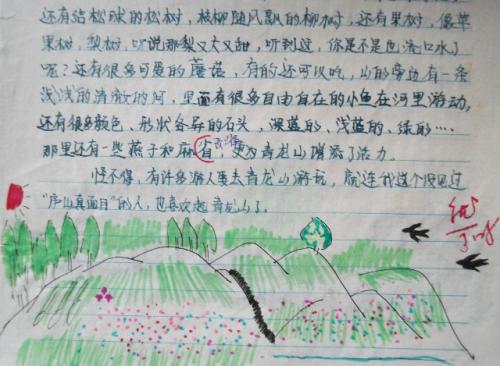 还有结松球的松树，枝柳随风飘的柳树，还有果树，像苹
果树，梨树，听说那梨又大又甜，听到这，你是不是也流口水了
呢？还有很多可爱的蘑菇，有的还可以吃，山的旁边有一条
浅浅的清澈的河，里面有很多自由自在的小鱼在河里游动，
还有很多颜色、形状各异的石头，深蓝的、浅蓝的、绿的……
那里还有一些燕子和麻省，更为青龙山增添了活力。
怪不得，有许多游人要去青龙山游玩，就连我这个没见过
“庐山真面目”的人，也喜欢起青龙山了。